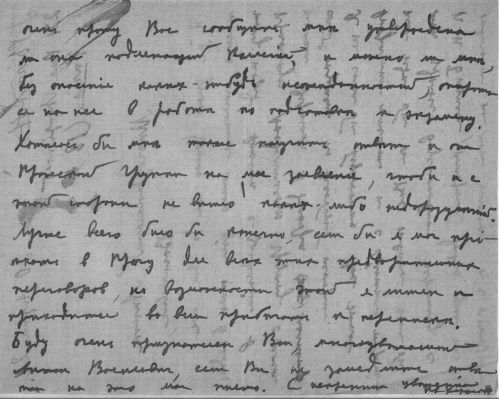 очень прошу Вас сообщить мне утверждена
ли она подлежащей Комиссией, и можно ли мне,
без опасения каких-нибудь неожиданностей, опереть
ся на нее в работе по подготовке к экзамену.
Хотелось бы мне также получить ответ и от
Пражской Группы на мое заявление, чтобы и с
этой стороны не вышло каких-либо недоразумений.
Лучше всего было бы, конечно, если бы я мог при
ехать в Прагу для всех этих предварительных
переговоров, но возможности этой я лишен и
приходится во всем прибегать к переписке.
Буду очень признателен Вам, многоуважаемый
Васильевич, если Вы не замедлите отве
тить на это мое письмо. С искренним уважением